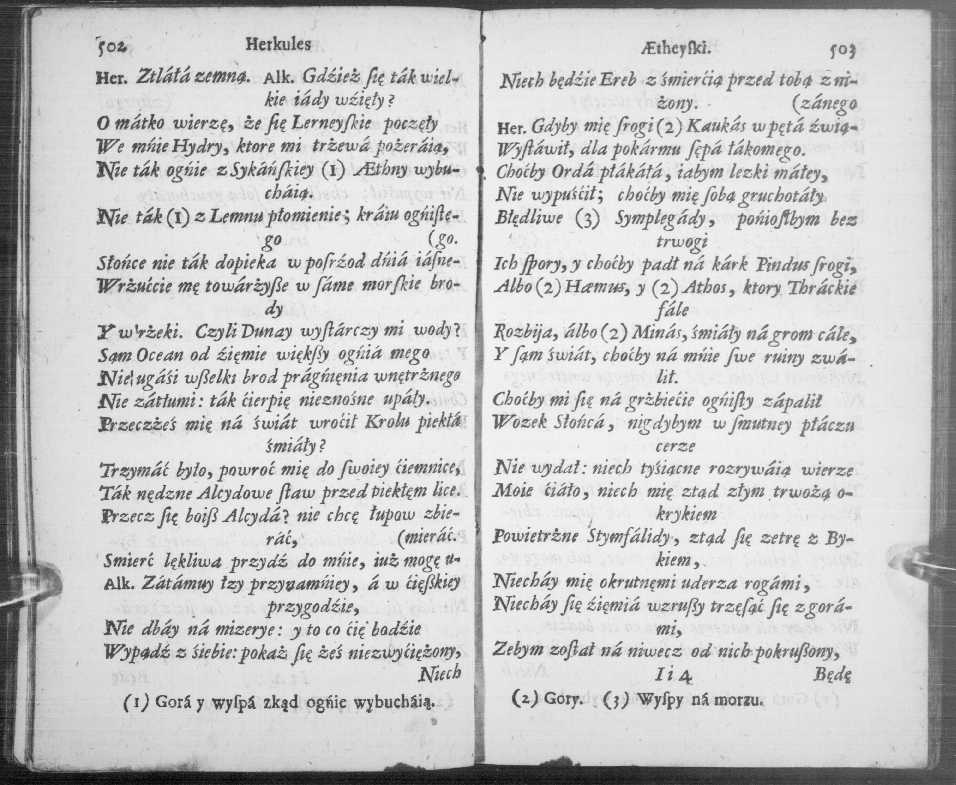 502 Herkules
Her. Ztláłá zemną. Alk. Gdźież ſię ták wiel-
kie iády wźięły?
O mátko wierzę, że ſię Lerneyſkie poczęły
We mńie Hydry, ktore mi trzewá pożeráią,
Nie ták ogńie z Sykáńſkiey (1) Æthny wybu-
cháią.
Nie ták (1) z Lemnu płomienie; kráiu ogńiſtę-
go (go.
Słońce nie ták dopieka w poſrźod dńiá iáſne-
Wrżućcie mę towárzyſze w ſáme morſkie bro-
dy
Y w wrżeki. Czyli Dunay wyſtárczy mi wody?
Sąm Ocean od źięmie więkſzy ogńiá mego
Nie ugáśi wßelki brod prágńięnia wnętrznego
Nie zátłumi: ták ćierpię nieznośne upáły.
Przeczżeś mię ná świát wroćił Krolu piekłá
śmiáły?
Trzymáć było, powroć mię do ſwoiey ćiemnice,
Ták nędzne Alcydowe ſtaw przed piekłęm lice.
Przecz ſię boiß Alcydá? nie chcę łupow zbie-
ráć, (mieráć.
Smierć lękliwa przydź do mńie, iuż mogę u-
Alk. Zátámuy łzy przynamńiey, á w ćięſzkiey
przygodźie,
Nie dbáy ná mizerye: y to co ćię bodźie
Wypądź z śiebie: pokaż ſię żéś niezwyćiężony,
Niech
(1) Gorá y wyſpá zkąd ogńie wybucháią.
Ætheyſki. 503
Niech będźie Ereb z śmierćią przed tobą z ni-
żony. (zánego
Her. Gdyby mię ſrogi (2) Kaukás w pętá źwią-
Wyſtáwił, dla pokármu ſępá łákomego.
Choćby Ordá płákáłá, iabym lezki máłey,
Nie wypuśćił; choćby mię ſobą gruchotáły
Błędliwe (3) Symplegády, pońioſłbym bez
trwogi
Ich ſpory, y choćby padł ná kárk Pindus ſrogi,
Albo (2) Hæmus, y (2) Athos, ktory Thráckie
fále
Rozbija, álbo (2) Minás, śmiáły ná grom cále,
Y ſąm świát, choćby ná mńie ſwe ruiny zwá-
lił.
Choćby mi ſię ná grzbiećie ogńiſty zápalił
Wozek Słońcá, nigdybym w ſmutney płáczu
cerze
Nie wydał: niech tyśiącne rozrywáią wierze
Moie ćiáło, niech mię ztąd złym trwożą o-
krykiem
Powietrżne Stymfálidy, ztąd ſię zetrę z By-
kiem,
Niecháy mię okrutnęmi uderza rogámi,
Niecháy ſię źięmiá wzruſzy trzęſąć ſię z gorá-
mi,
Zebym został ná niwecz od nich pokrußony,
I i 4 Będę
(2) Gory. (3) Wyſpy ná morzu.